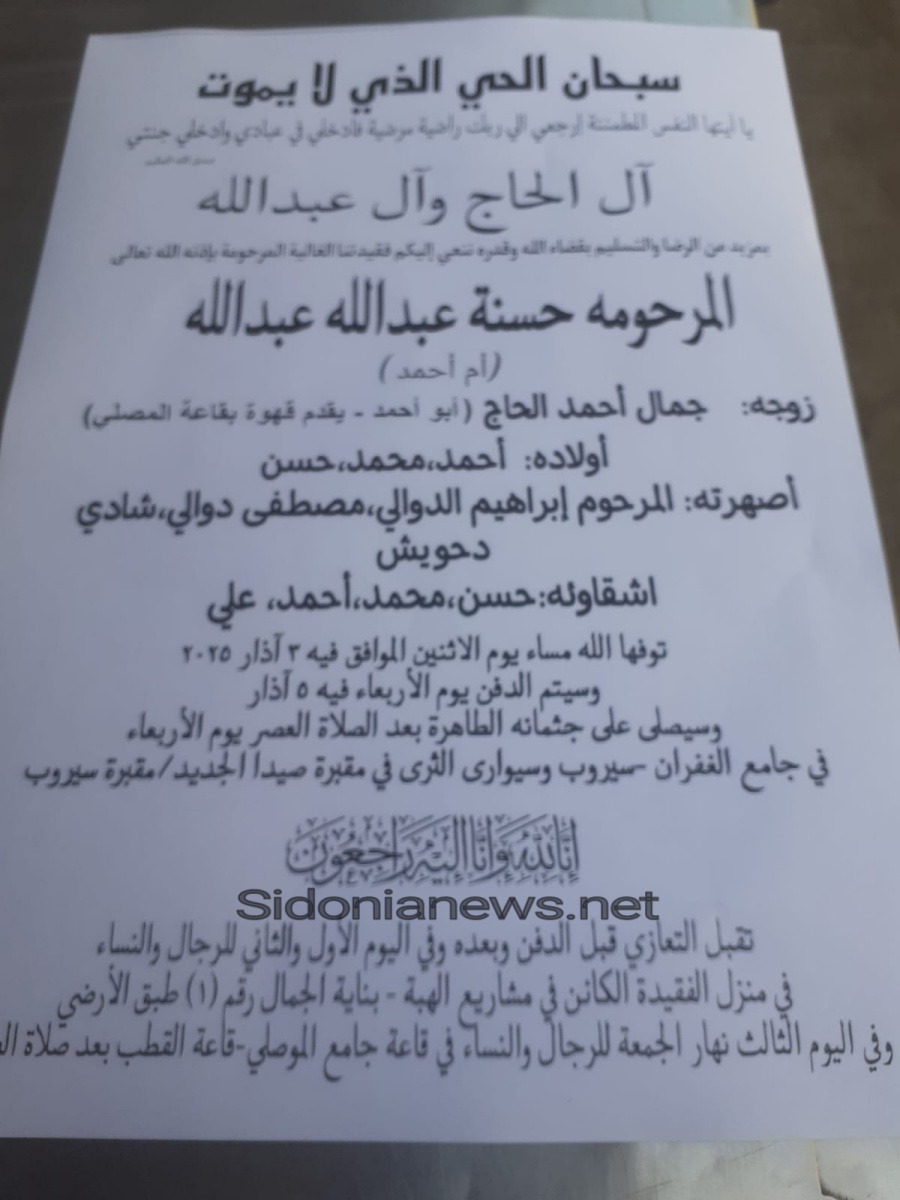 سبحان الحي الذي لا يموت
يا أيتها النفس المطمئنة إرجعي الي ربك راضية مرضية فأدخلي في عبادي وادخلي جنتي
صدق الله العظيم
آل الحاج وآل عبدالله
بمزيد من الرضا والتسليم بقضاء الله وقدره ننعي إليكم فقيدتنا الغالية المرحومة بإذنه الله تعالى
المرحومه حسنة عبدالله عبدالله
(أم أحمد)
زوجه: جمال أحمد الحاج (أبو أحمد - يقدم قهوة بقاعة المصلي)
أولاده: أحمد،محمد،حسن
أصهرته: المرحوم إبراهيم الدوالي،مصطفى دوالي،شادي
دحويش
اشقاوئه:حسن،محمد،أحمد، علي
توفها الله مساء يوم الاثنين الموافق فيه ٣ آذار ٢٠٢٥
وسيتم الدفن يوم الأربعاء فيه ٥ آذار
وسيصلى على جثمانه الطاهرة بعد الصلاة العصر يوم الأربعاء
في جامع الغفران -سيروب وسيوارى الثرى في مقبرة صيدا الجديد/مقبرة سيروب
إنا لله وإنا إليه راجعون
Sidonianews.net
تقبل التعازي قبل الدفن وبعده وفي اليوم الأول والثاني للرجال والنساء
في منزل الفقيدة الكائن في مشاريع الهبة - بناية الجمال رقم (١) طبق الأرضي
وفي اليوم الثالث نهار الجمعة للرجال والنساء في قاعة جامع الموصلي-قاعة القطب بعد صلاة